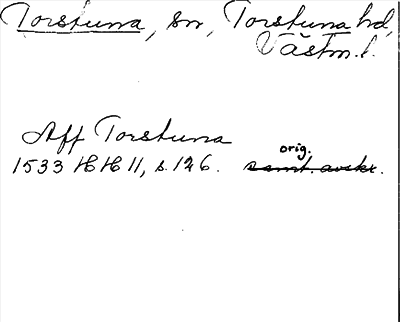 Torstuna, sn, Torstuna hd,
Västm. l.
Aff Torstuna
1533 HH 11, s. 126. orig. samt. avskr.